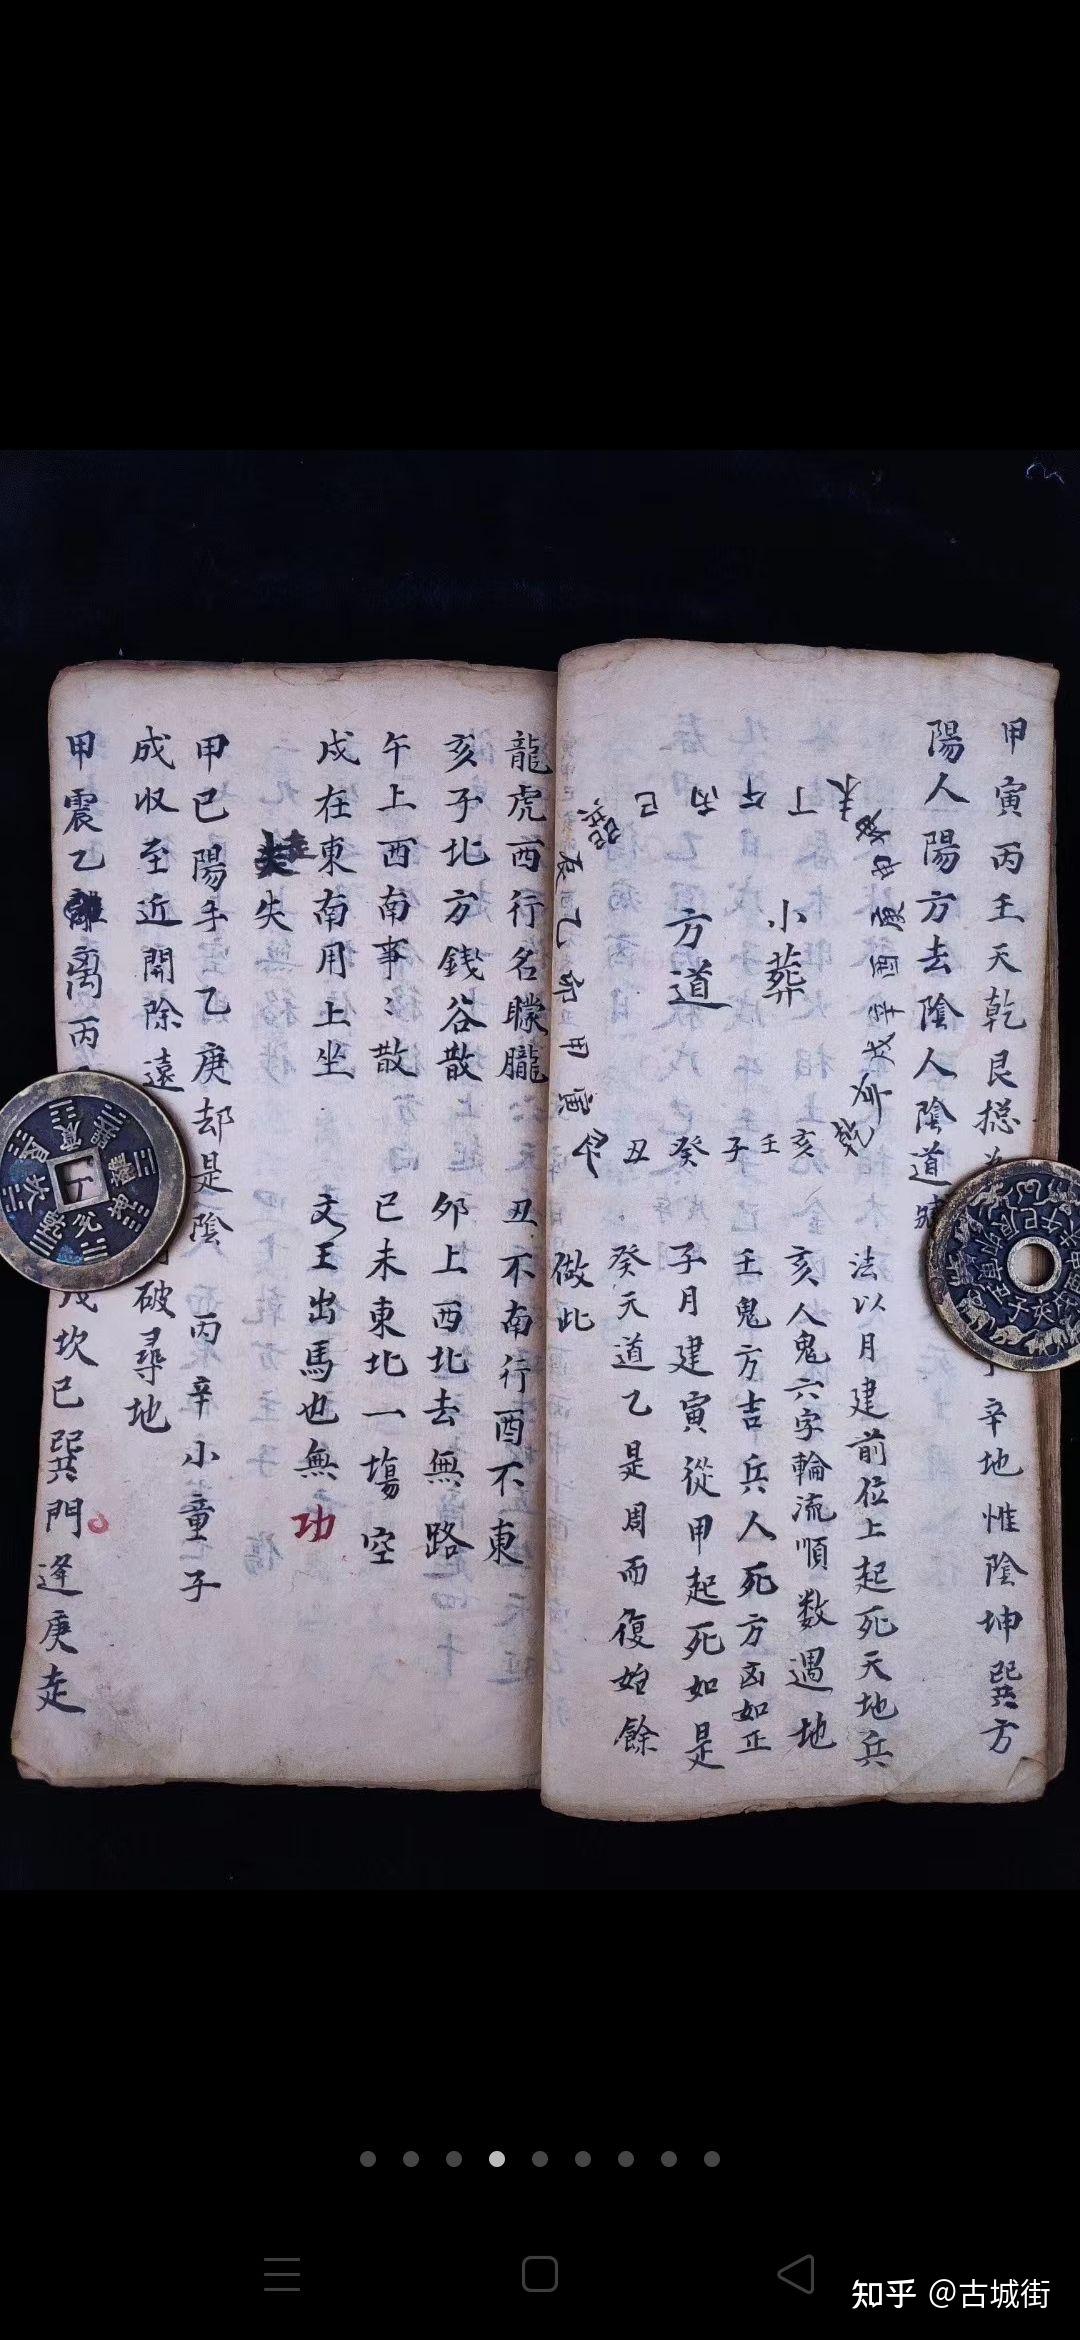 甲寅丙壬天乾艮揔
辛地惟陰坤巽方
陽人陽方去陰人陰道
小葬
方道
巽辰乙卯甲寅艮丑癸子壬亥乾戌辛酉庚申坤未丁午丙巳
法以月建前位上起死天地兵
亥人鬼六字輪流順数遇地
壬鬼方吉兵人死方凶如正
子月建寅從甲起死如是
癸天道乙是周而復始餘
做此
龍虎西行名朦朧 丑不南行酉不東
亥子北方錢谷散 夘上西北去無路
午上西南事〻散 巳未東北一塲空
戍在東南用上坐 文王出馬也無功
失
甲巳陽手乙庚却是陰 丙辛小童子
成収至近開除遠
破尋地
甲震乙離丙
戊坎已巽門逢庚走
知乎 @古城街